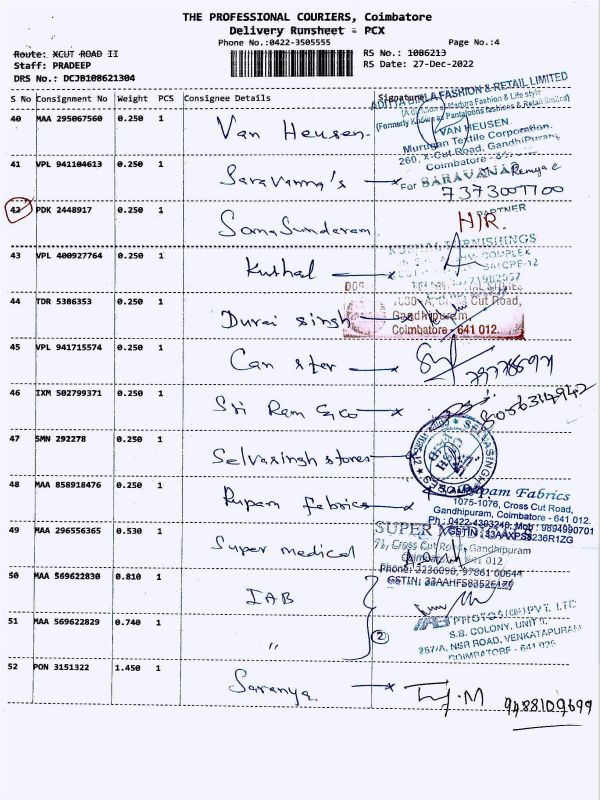 THE PROFESSIONAL COURIERS, Coimbatore
Delivery Runsheet - PCX
Phone No.:0422-3505555 Page No.:4
Route: XCUT ROAD II RS No.: 1086213
Staff: PRADEEP RS Date: 27-Dec-2022
DRS No.: DCJB108621304
S No Consignment No Weight PCS Consignee Details Signature
ADITYA BIRLA FASHION & RETAIL LIMITED
(A division of Madura Fashion & Life style
(Formerly Known as Pantaloons fashions & Retail limited)
40 MAA 295067560 0.250 1 Van Heusen VAN HEUSEN.
Murugan Textile Corporation.
260, X-Cut Road, GandhiPuram,
Coimbatore -
41 VPL 941104613 0.250 1 Saravanna's For SARAVANA
7373001100
PARTNER
42 PDK 2448917 0.250 1 Soma Sundaram H/R.
FURNISHINGS
COMPLEX
43 VPL 400927764 0.250 1 Kushal
44 TDR 5386353 0.250 1 Durai singh
1030-A, Cross Cut Road,
Gandhipuram,
Coimbatore - 641 012.
45 VPL 941715574 0.250 1 Can ster
46 IXM 502799371 0.250 1 Sri Ram & Co 8056314942
47 SMN 292278 0.250 1 Selvasingh stores
SELVASINGH STORES
48 MAA 858918476 0.250 1 Rupam fabrics Rupam Fabrics
1075-1076, Cross Cut Road,
Gandhipuram, Coimbatore - 641 012.
Ph : 0422-4393249, Mob : 9894990701
GSTIN : 33AAXPS8236R1ZG
49 MAA 296556365 0.530 1 Super medical SUPER
71, Cross Cut Road, Gandhipuram
641 012
Phone: 2236096, 97861 00644
GSTIN: 33AAHFS8352E1Z0
50 MAA 569622830 0.810 1 IAB
51 MAA 569622829 0.740 1 " 2
PHOTOS (I) PVT. LTD
S.B. COLONY, UNIT II,
267/A, NSR ROAD, VENKATAPURAM
COIMBATORE - 641 025
52 PON 3151322 1.450 1 Saranya
9488109699